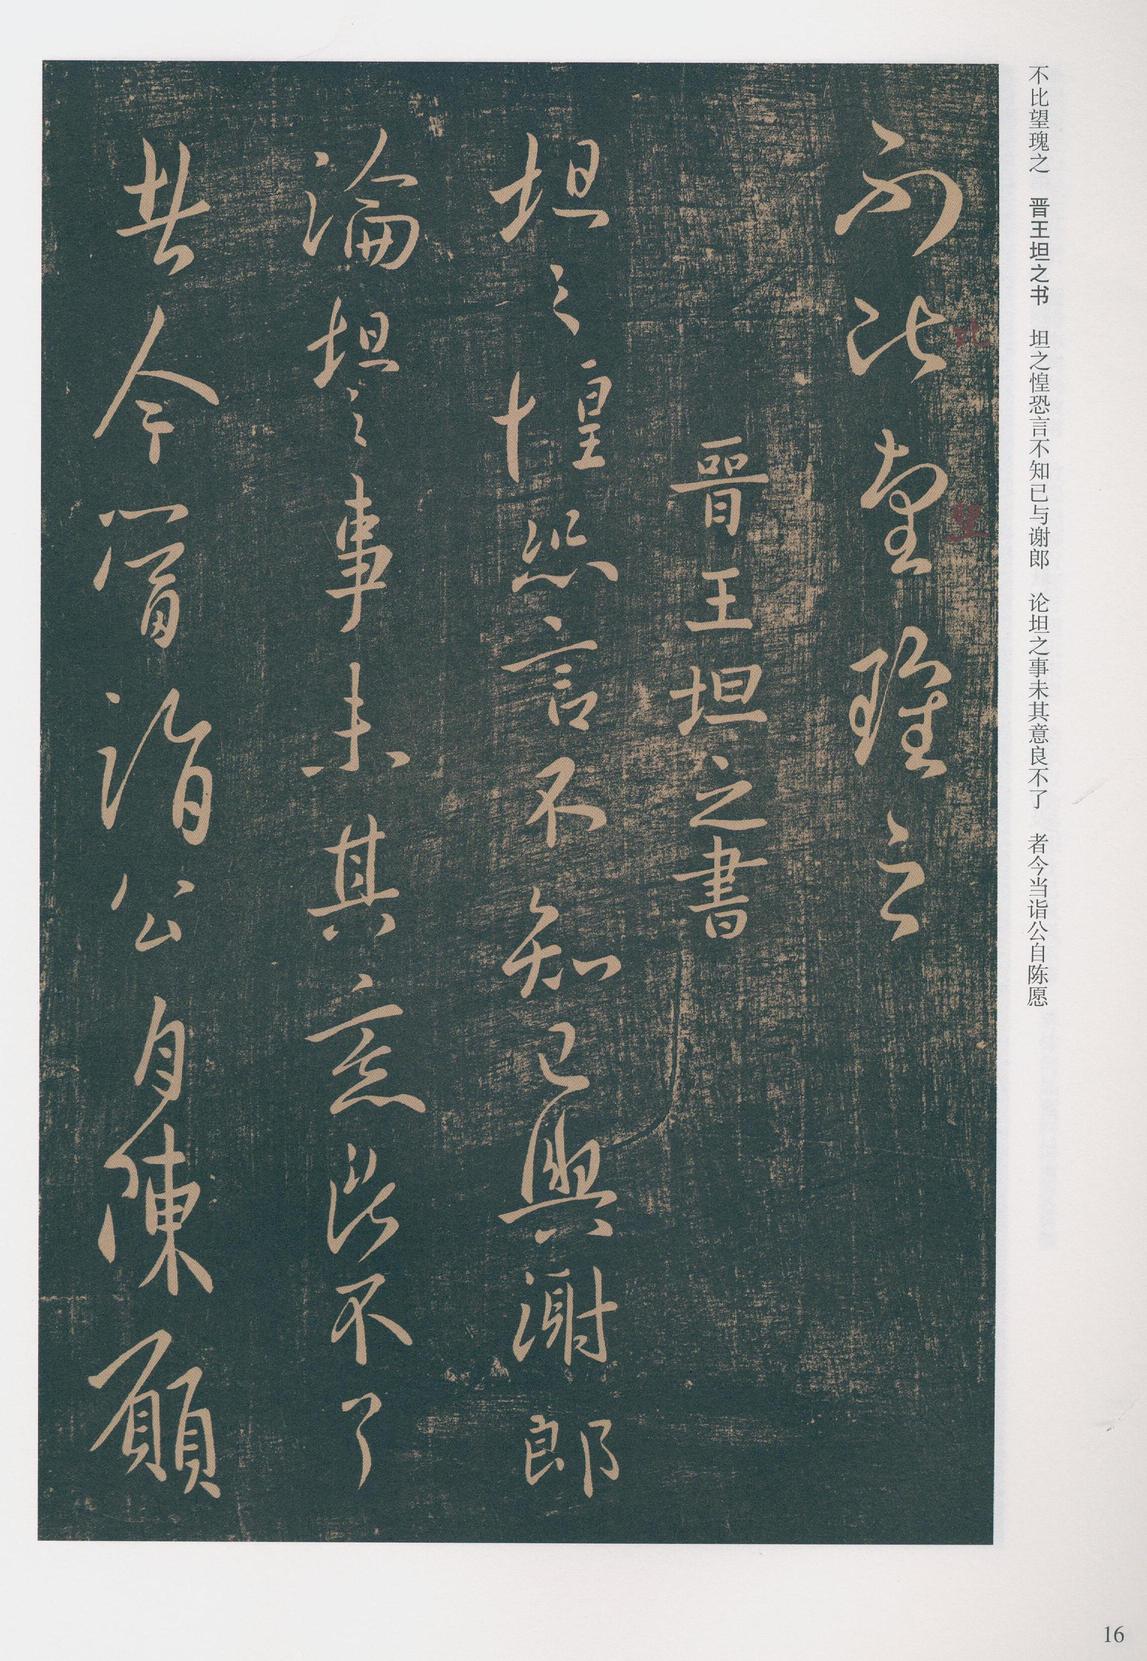 不比望瑰之　晋王坦之书　坦之惶恐言不知已与谢郎　论坦之事未其意良不了　者今当诣公自陈愿
不比望瑰之
晋王坦之書
坦之惶恐言不知已與謝郎
論坦之事未其意不了
者今當詣公自陳願
比
望
16